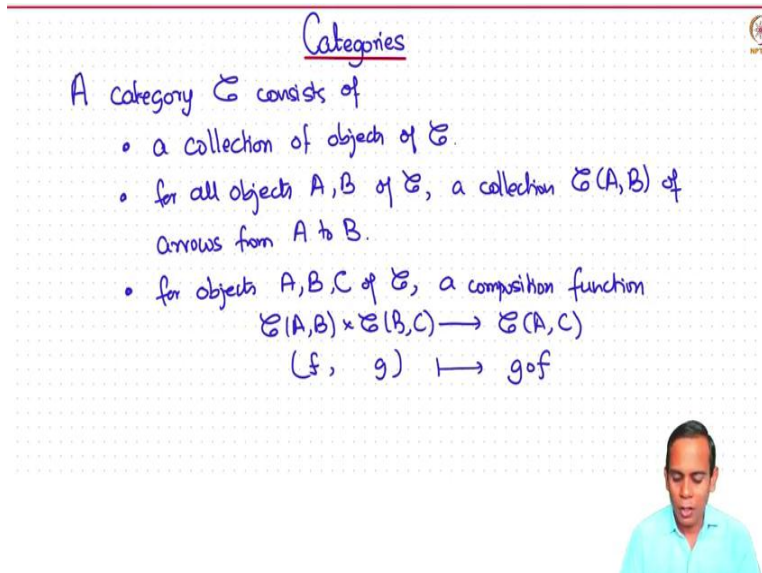 Categories
A category 𝒞 consists of
• a collection of objects of 𝒞.
• for all objects A, B of 𝒞, a collection 𝒞(A,B) of
arrows from A to B.
• for objects A, B, C of 𝒞, a composition function
𝒞(A,B) × 𝒞(B,C) ⟶ 𝒞(A,C)
(f, g) ⟼ g∘f